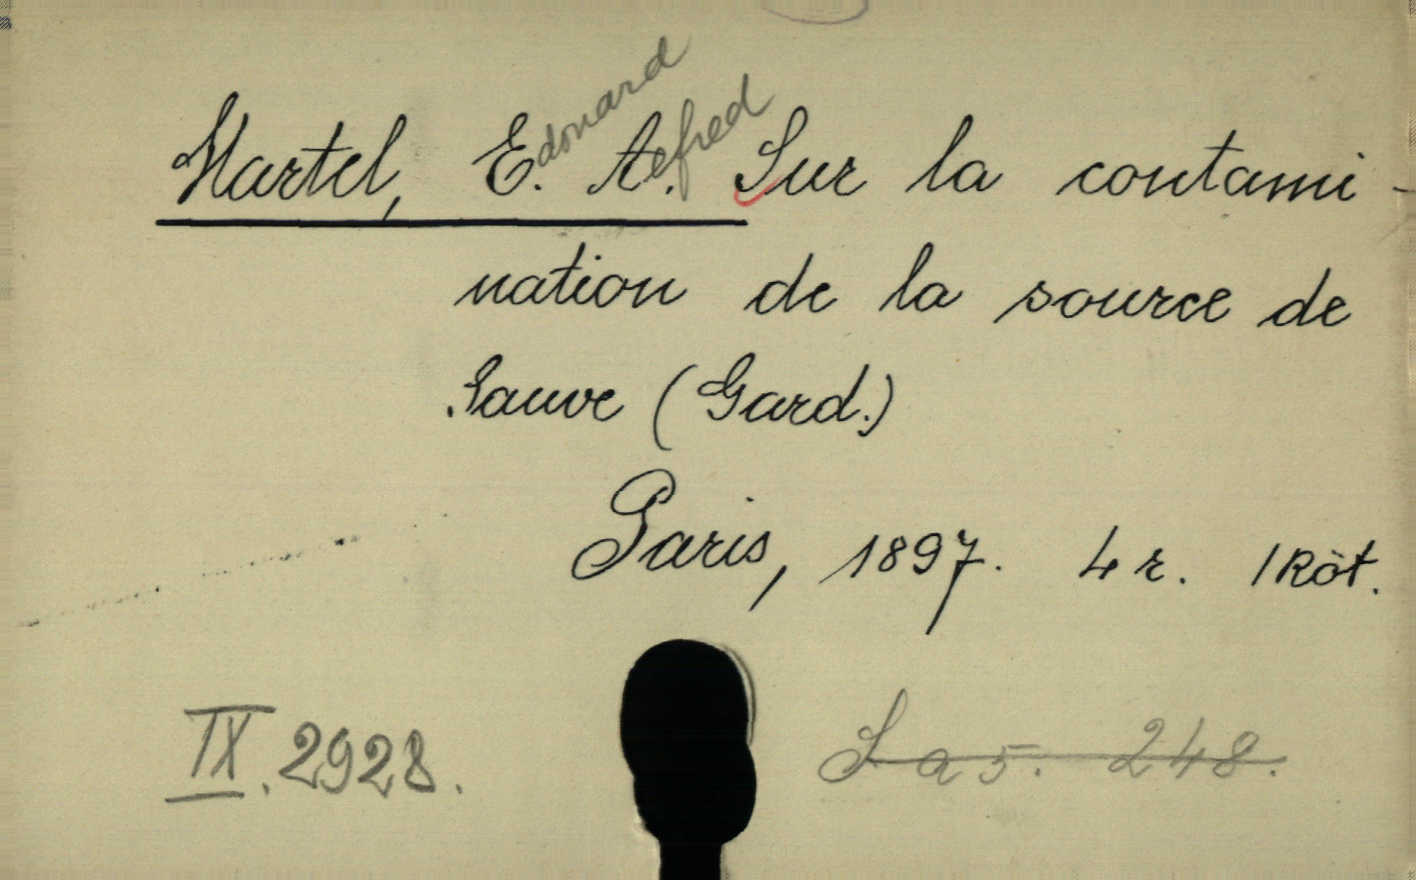 Martel, E.douard A.lfred Sur la contami-
nation de la source de
Sauve (Gard.)
Paris, 1897. 4r. 1 Köt.
IX. 2928. La 5. 248.